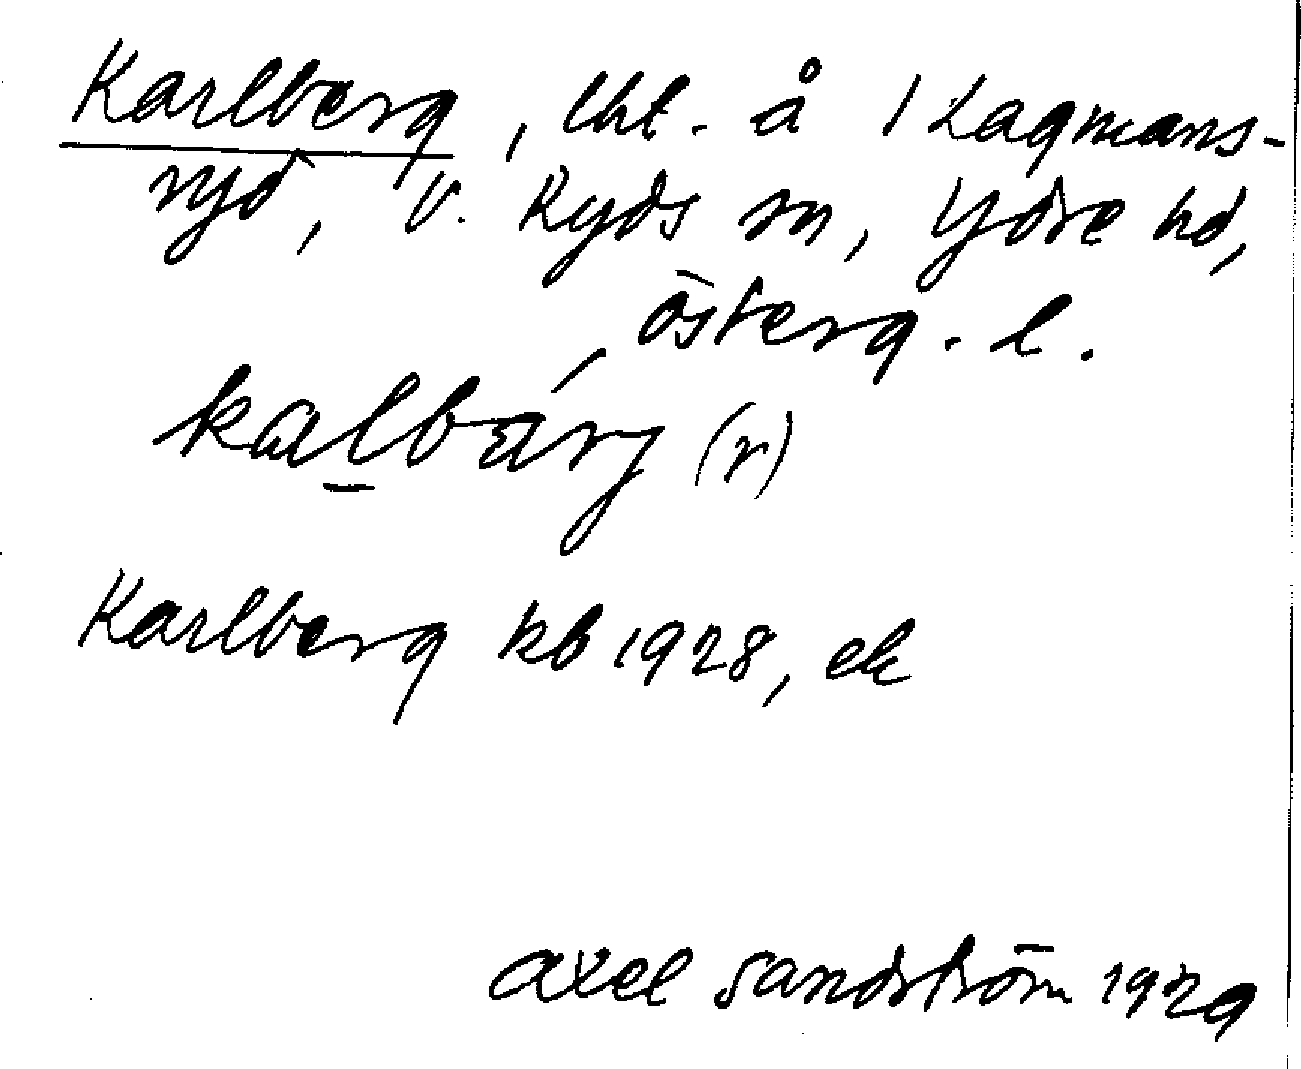 Karlberg, lht. å 1 Lagmans-
ryd, V. Ryds sn, Ydre hd,
österg. l.
kalbärj (r)
Karlberg kb 1928, ek
Axel Sandström 1929